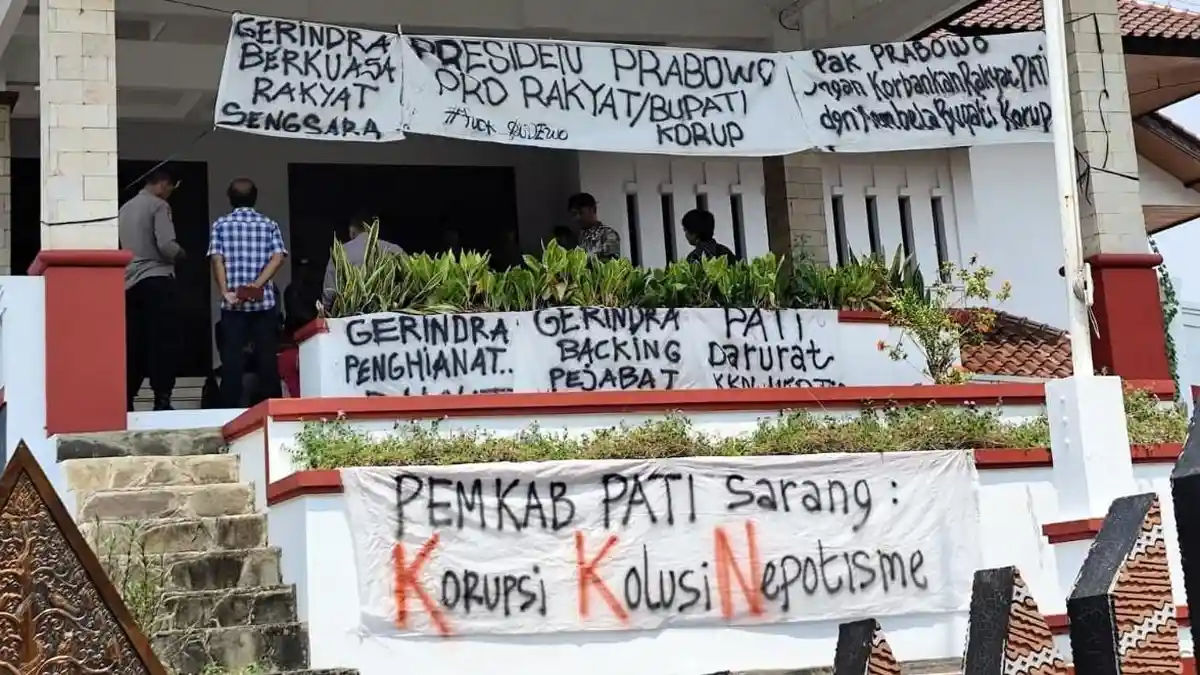 GERINDRA
BERKUASA
RAKYAT
SENGSARA
PRESIDEN PRABOWO
PRO RAKYAT/BUPATI
KORUP
Pak PRABOWO
Jngan Korbankan Rakyat PATI
dgn Membela Bupati Korup
GERINDRA
PENGHIANAT..
GERINDRA
BACKING
PEJABAT
PATI
Darurat
PEMKAB PATI Sarang :
Korupsi Kolusi Nepotisme